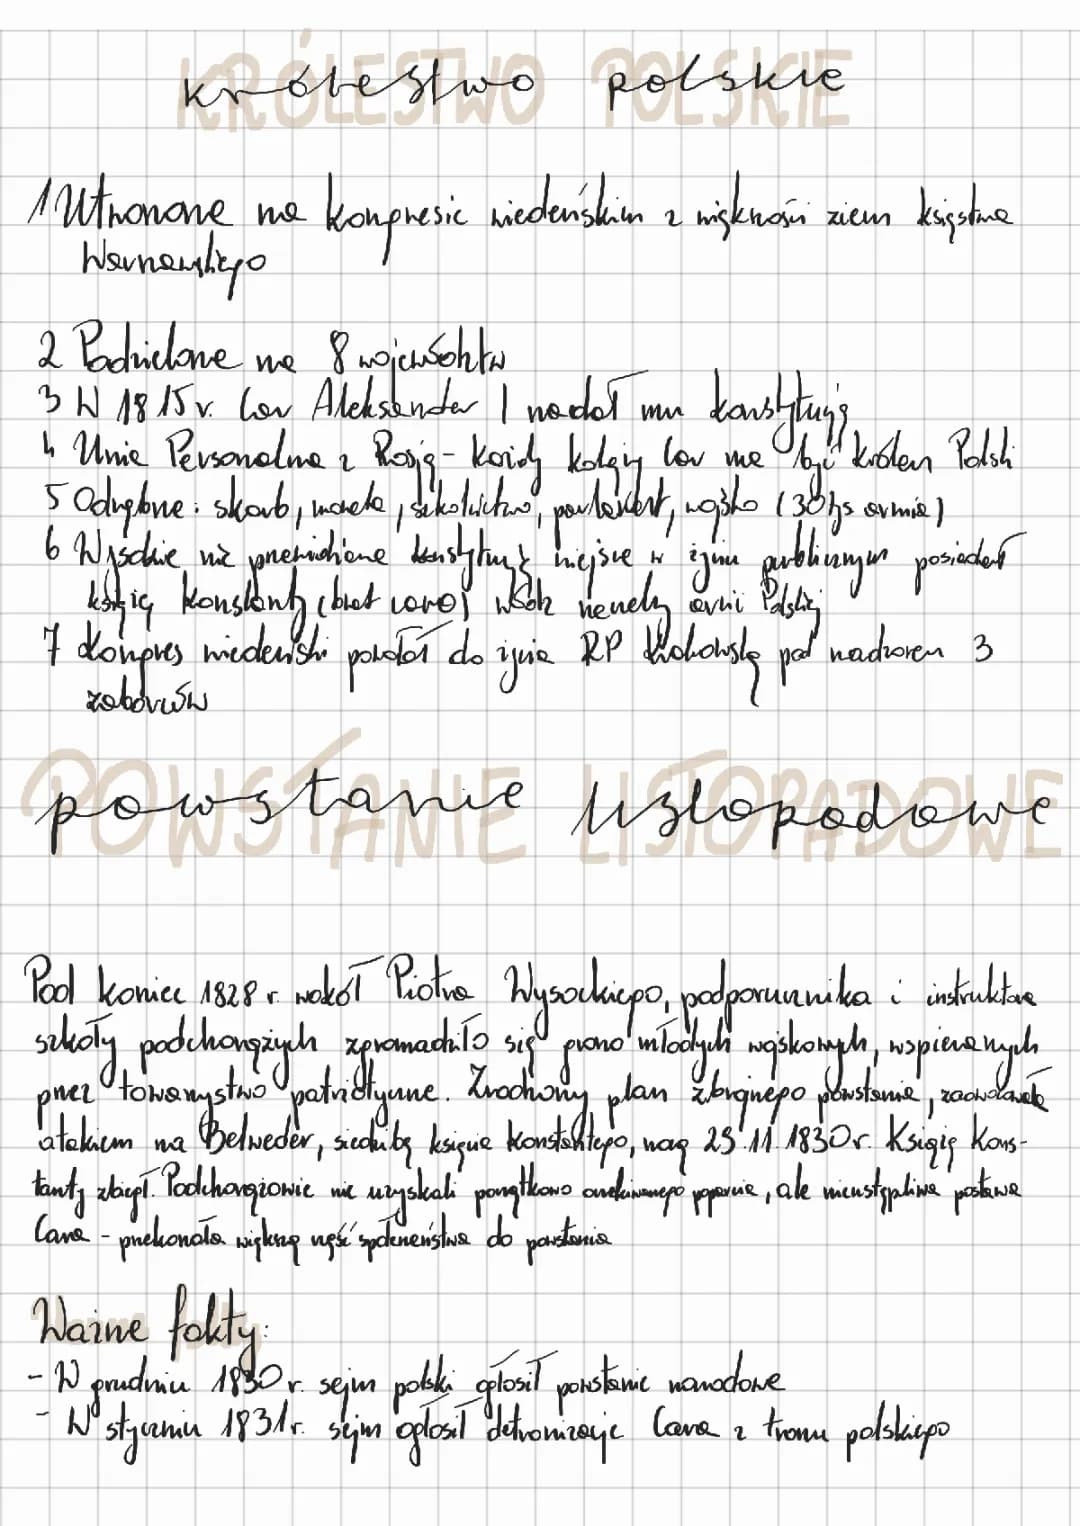 KRÓLESTWO POLSKIE
1 Utworzone na kongresie wiedeńskim z większości ziem księstwa
Warszawskiego
2 Podzielone na 8 województw
3 W 1815 r. Car Aleksander I nadał mu konstytucję
4 Unia Personalna z Rosją - każdy kolejny Car ma być królem Polski
5 Odrębne: skarb, moneta, szkolnictwo, parlament, wojsko (30 tys armia)
6 Wysokie, nie przewidziane konstytucją miejsce w życiu publicznym posiadał
książę Konstanty (brat cara) wódz naczelny armii Polskiej
7 Kongres wiedeński powołał do życia RP Krakowską pod nadzorem 3
zaborców
POWSTANIE LISTOPADOWE
Pod koniec 1828 r. wokół Piotra Wysockiego, podporucznika i instruktora
szkoły podchorążych zgromadziło się grono młodych wojskowych, wspieranych
przez towarzystwo patriotyczne. Zrodzony plan zbrojnego powstania,
atakiem na Belweder, siedzibę księcia Konstantego, nocą 29.11.1830 r. Książę Kons-
tanty zbiegł. Podchorążowie nie uzyskali początkowo oczekiwanego poparcia, ale nieustępliwa postawa
Cara - przekonała większą część społeczeństwa do powstania
Ważne fakty:
- W grudniu 1830 r. sejm polski ogłosił powstanie narodowe
- W styczniu 1831 r. sejm ogłosił detronizację Cara z tronu polskiego